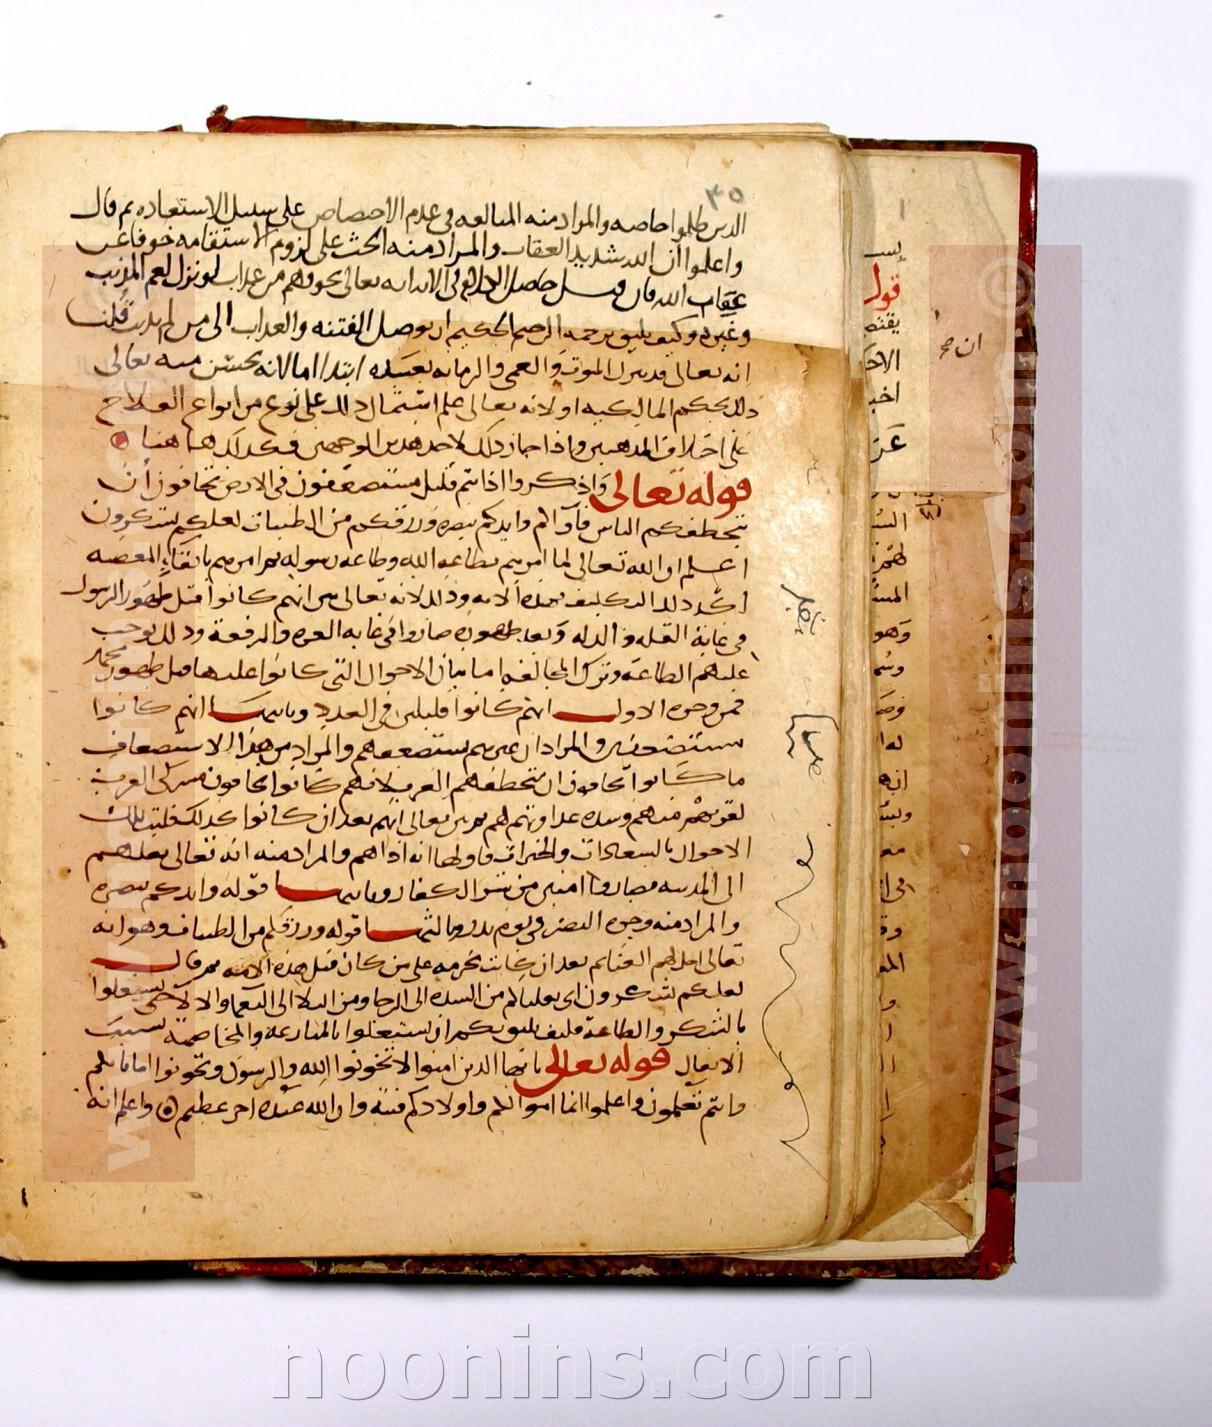 ٣٥
الذين ظلموا خاصه والمراد منه المبالغه فى عدم الاختصاص على سبيل الاستعاره ثم قال
واعلموا ان الله شديد العقاب والمراد منه الحث على لزوم الاستقامه خوفا من
عقاب الله فان قيل حاصل الكلام فى الاية انه تعالى يخوفهم من عذاب لو نزل لعم المذنب
وغيره وكيف يليق برحمه الرحيم الحكيم ان يوصل الفتنه والعذاب الى من لم يذنب قلنا
انه تعالى قد ينزل الموت والعمى والزمانه بعبده ابتداء اما لانه يحسن منه تعالى
ذلك بحكم المالكيه او لانه تعالى علم اشتمال ذلك على نوع من انواع الصلاح
على اختلاف المذهبين واذا جاز ذلك لاحد هذين الوجهين فكذلك هاهنا
قوله تعالى واذكروا اذ انتم قليل مستضعفون فى الارض تخافون أن
يتخطفكم الناس فآواكم وايدكم بنصره ورزقكم من الطيبات لعلكم تشكرون
اعلم ان الله تعالى لما امرهم بطاعه الله وطاعه رسوله ثم امرهم باتقاء المعصيه
اكد ذلك التكليف بهذه الايه وذلك لانه تعالى بين انهم كانوا قبل ظهور الرسول
فى غاية القله والذله وبعد ظهوره صاروا فى غايه العزه والرفعة وذلك يوجب
عليهم الطاعة وترك المخالفه اما بيان الاحوال التى كانوا عليها قبل ظهور محمد
فمن وجوه الاول انهم كانوا قليلين فى العدد وثانيها انهم كانوا
مستضعفين والمراد ان غيرهم يستضعفهم والمراد من هذا الاستضعاف
ما كانوا يخافون ان يتخطفهم العرب لانهم كانوا يخافون مشركى العرب
لقربهم منهم وشده عداوتهم لهم ثم بين تعالى انهم بعد ان كانوا كذلك قلبت تلك
الاحوال بالسعادات والخيرات فاولها انه اواهم والمراد منه انه تعالى نقلهم
الى المدينه فصاروا امنين من شر الكفار وثانيها قوله وايدكم بنصره
والمراد منه وجوه النصر فى يوم بدر وثالثها قوله ورزقكم من الطيبات وهو انه
تعالى احل لهم الغنائم بعد ان كانت محرمه على من كان قبل هذه الامه ثم قال
لعلكم تشكرون اى نقلناكم من الشده الى الرخا ومن البلا الى النعما والالا حتى تشتغلوا
بالشكر والطاعة فكيف يليق بكم ان تشتغلوا بالمنازعه والمخاصمة بسبب
الانفال قوله تعالى يا ايها الذين امنوا لا تخونوا الله والرسول وتخونوا اماناتكم
وانتم تعلمون واعلموا انما اموالكم واولادكم فتنة وان الله عنده اجر عظيم واعلم انه
قول
noonins.com